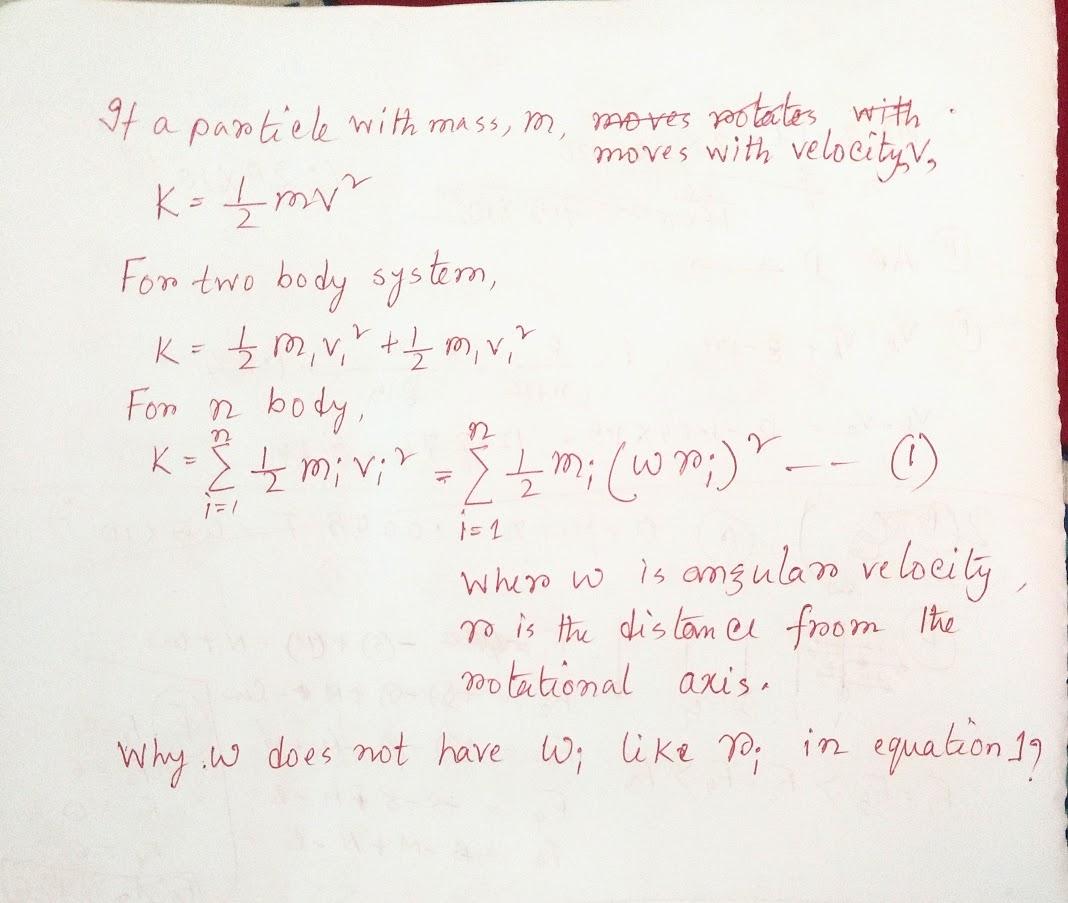 If a particle with mass, m, moves rotates with
moves with velocity, v,
K = 1/2 mv²
For two body system,
K = 1/2 m₁v₁² + 1/2 m₁v₁²
For n body,
K = Σᵢ₌₁ⁿ 1/2 mᵢvᵢ² = Σᵢ₌₁ⁿ 1/2 mᵢ(ωrᵢ)² --- (1)
Where ω is angular velocity,
r is the distance from the
rotational axis.
Why ω does not have ωᵢ like rᵢ in equation 1?